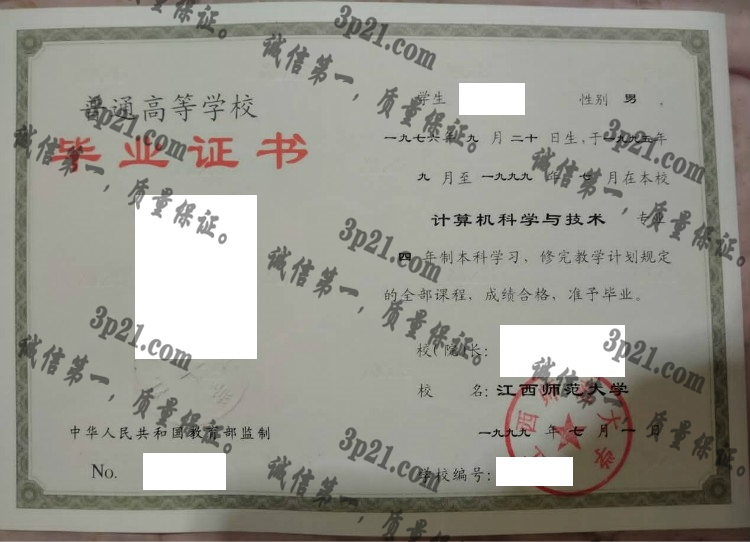 普通高等学校
毕业证书
中华人民共和国教育部监制
No.
学生 性别 男，
一九七六年九月二十日生，于一九九五年
九月至一九九九年七月在本校
计算机科学与技术 专业
四年制本科学习，修完教学计划规定
的全部课程，成绩合格，准予毕业。
校(院)长：
校 名：江西师范大学
一九九九年七月一日
学校编号：
江西师范大学
3p21.com
诚信第一，质量保证。
3p21.com
诚信第一，质量保证。
3p21.com
诚信第一，质量保证。
3p21.com
诚信第一，质量保证。
3p21.com
诚信第一，质量保证。
3p21.com
诚信第一，质量保证。
3p21.com
诚信第一，质量保证。